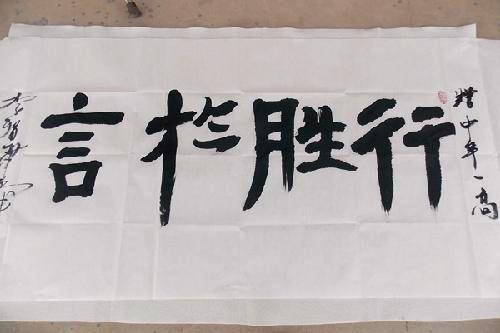 赠中牟一高
行胜於言